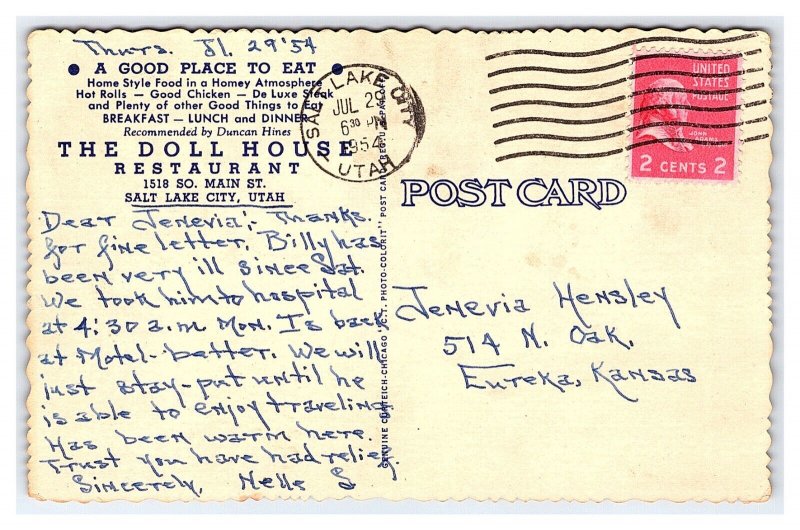 Thurs. Jl. 29 '54
• A GOOD PLACE TO EAT •
Home Style Food in a Homey Atmosphere
Hot Rolls — Good Chicken — De Luxe Steak
and Plenty of other Good Things to Eat
BREAKFAST — LUNCH and DINNER
Recommended by Duncan Hines
THE DOLL HOUSE
RESTAURANT
1518 SO. MAIN ST.
SALT LAKE CITY, UTAH
Dear Jenevia;- Thanks
for fine letter. Billy has
been very ill since Sat.
We took him to hospital
at 4:30 a.m Mon. Is back
at Motel-better. We will
just stay-put until he
is able to enjoy traveling.
Has been warm here.
Trust you have had relief.
Sincerely, Nelle S
GENUINE CURTEICH-CHICAGO "C.T. PHOTO-COLORIT" POST CARD (REG. U.S. PAT. OFF.)
SALT LAKE CITY
JUL 29
6 30 PM
1954
UTAH
UNITED
STATES
POSTAGE
JOHN
ADAMS
2 CENTS 2
POST CARD
Jenevia Hensley
514 N. Oak.
Eureka, Kansas